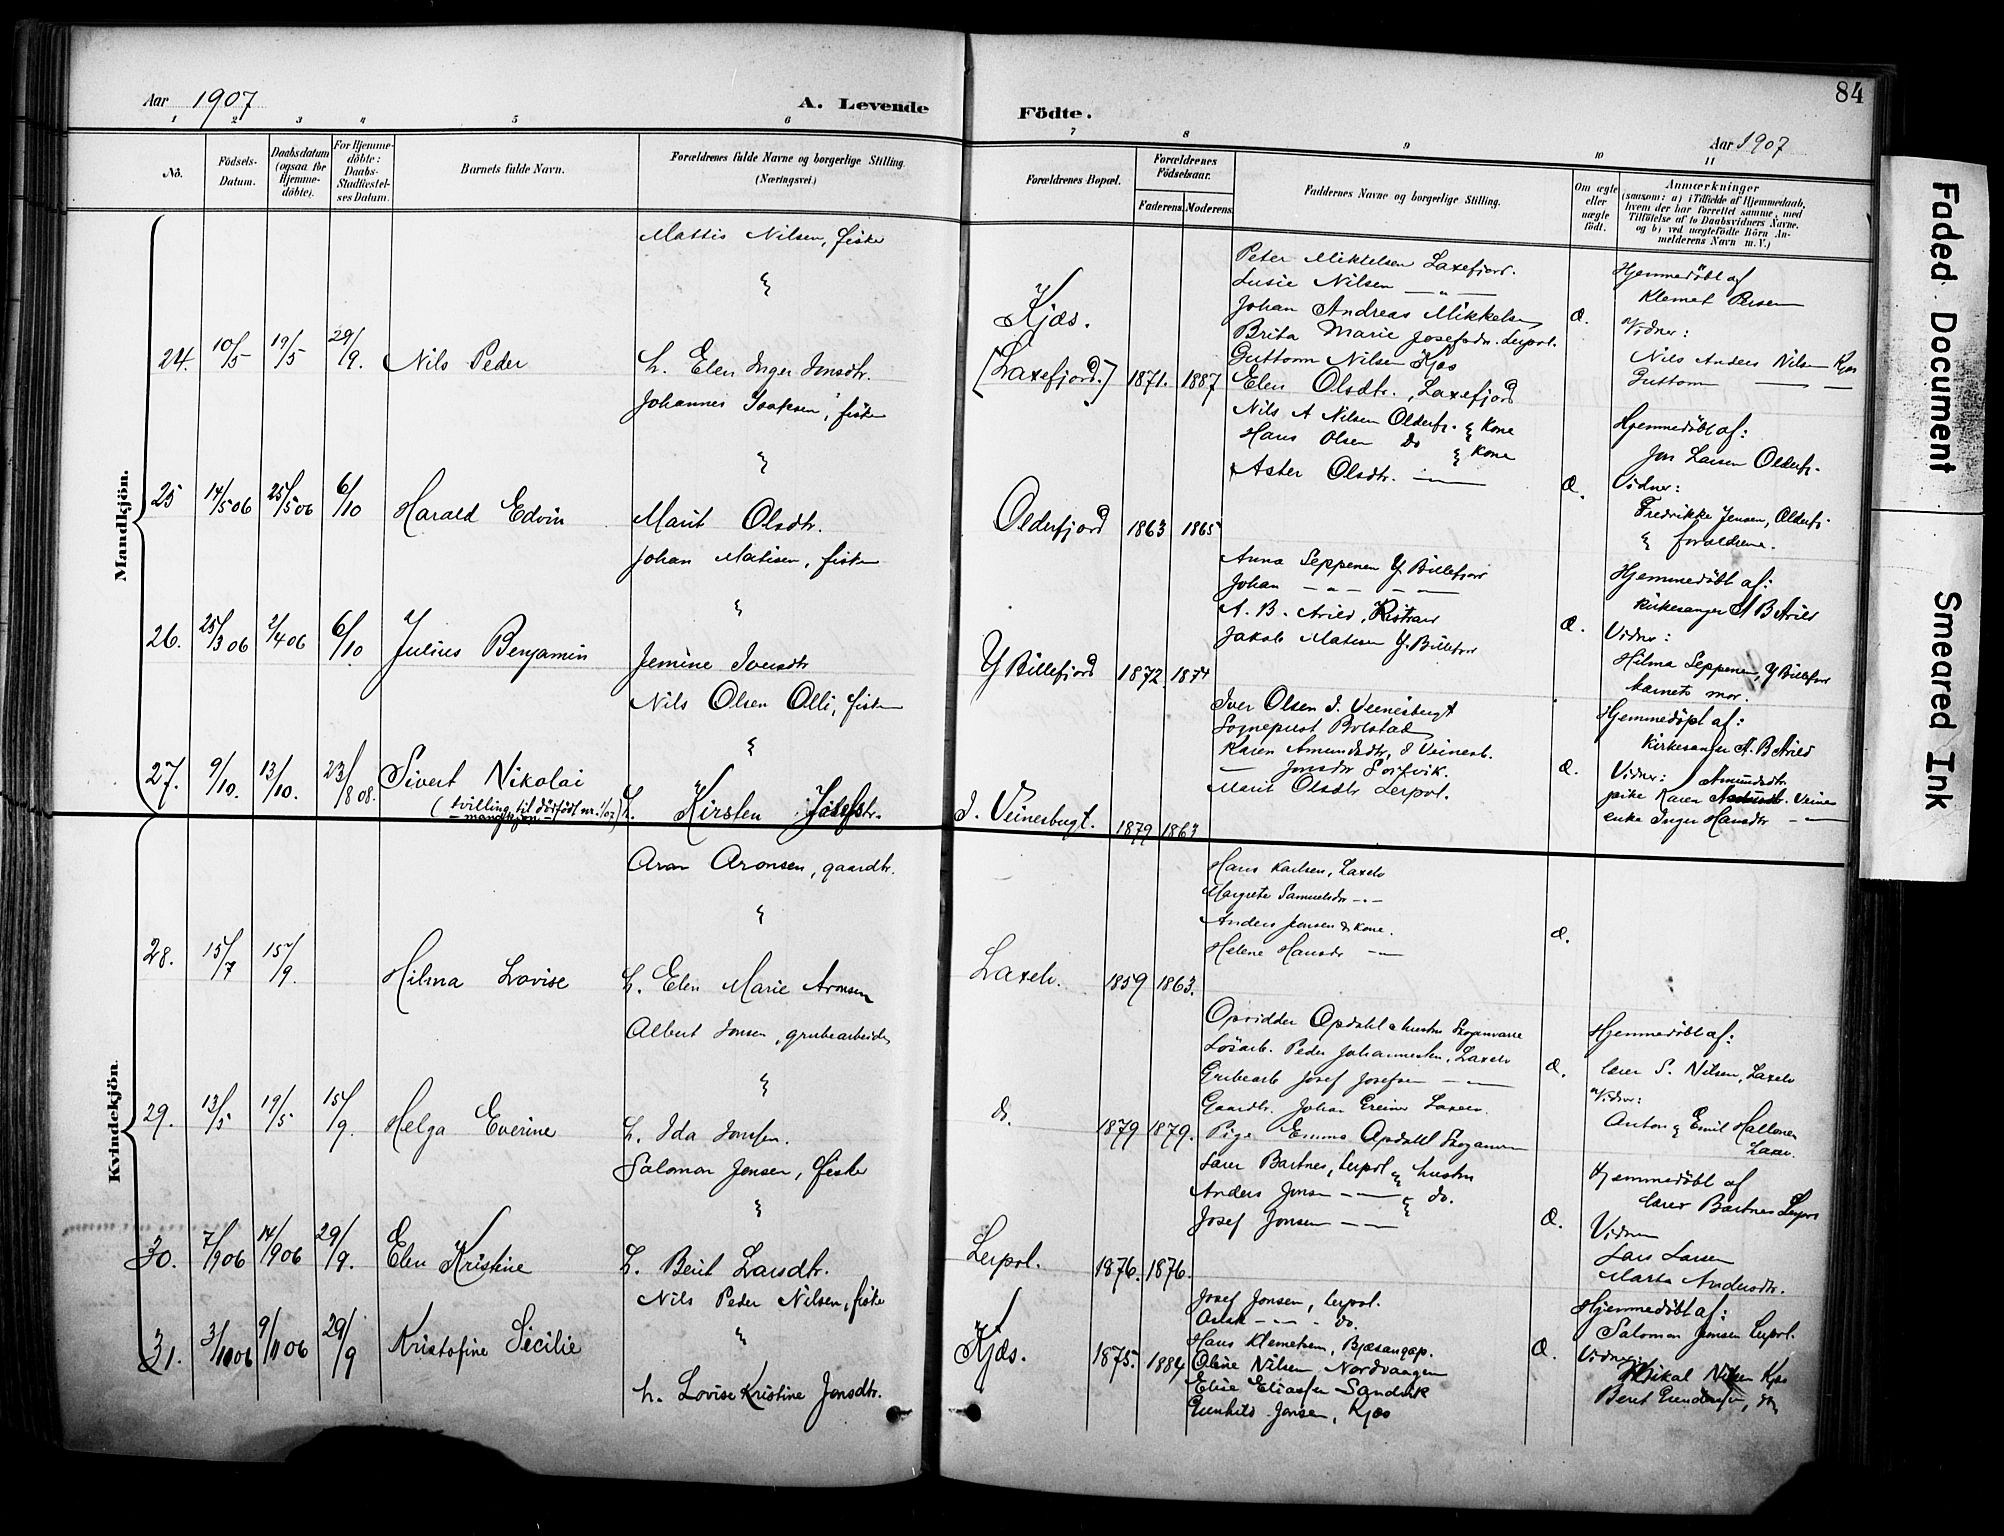 84
Aar 1907
A. Levende
Födte.
Aar 1907
1 2 3 4 5 6 7 8 9 10 11
No.
Födsels-
Datum.
Daabsdatum
(ogsaa for
Hjemme-
döbte).
For Hjemme-
döbte:
Daabs-
Stadfæstel-
ses Datum.
Barnets fulde Navn.
Forældrenes fulde Navne og borgerlige Stilling.
(Næringsvei.)
Forældrenes Bopæl.
Forældrenes
Födselsaar.
Faderens.
Moderens.
Faddernes Navne og borgerlige Stilling.
Om ægte
eller
uægte
födt.
Anmærkninger
(saasom: a) i Tilfælde af Hjemmedaab,
hvem der har forrettet samme, med
Tilföielse af to Daabsvidners Navne.
og b) ved uægtefödte Börn An-
melderens Navn m. V.)
Mandkjön.
24. 10/5 19/5 29/9. Nils Peder
Mattis Nilsen, fisker
&
h. Elen Inger Jonsdtr.
Kjæs.
(Laxefjord.) 1871. 1887
Peter Mikkelsen Laxefjord.
Lusie Nilsen — " —
Johan Andreas Mikkelsen
Brita Marie Josefsdr. Lerpol.
Guttorm Nilsen Kjæs
Elen Olsdtr. , Laxefjord
Æ.
Hjemmedöbt af
Klemet Persen
Vidner:
Nils Anders Nilsen Kjæs
Guttorm — —
25 14/5 06 25/5 06 6/10 Harald Edvin
Johannes Isaksen, fisker
&
Marit Olsdtr.
Olderfjord 1863 1865
Nils A Nilsen Olderfj. & Kone
Hans Olsen do & Kone
Aster Olsdtr. —
Æ.
Hjemmedöbt af:
Jon Larsen Olderfj.
Vidner:
Fredrikke Jensen, Olderfj.
& forældrene.
26. 25/3 06 2/4 06 6/10 Julius Benjamin
Johan Matisen, fisker
&
Jemine Iversdtr
Y Billefjord 1872. 1874
Anna Seppenen Y. Billefjord
Johan — " — " —
A. B. Arild, Kistrand
Jakob Matisen Y. Billefjord
Æ.
Hjemmedöbt af:
Kirkesanger A B Arild
Vidner:
Hilma Seppenen, Y Billefjord
barnets mor.
27. 9/10. 13/10. 23/8 08. Sivert Nikolai
(tvilling til dödfödt nr. 1/07)
mandkjön
Nils Olsen Olli, fisker
&
h. Kirsten Josefsdtr.
I. Veinesbugt. 1879 1863
Iver Olsen I. Veinesbugt
Sogneprest Bolstad
Karen Amundsdtr, I Veinesb.
— Jonsdtr
Marit Olsdtr Lerpol.
Æ.
Hjemmedöpt af:
Kirkesanger A. B Arild
Vidner: Amundsdtr
pike Karen . Veines
enke Inger Hansdtr — " —
Kvindekjön.
28. 15/7 15/9. Hilma Lovise
Aron Aronsen, gaardbr.
&
h. Elen Marie Aronsen
Laxelv. 1859 1863.
Hans Karlsen, Laxelv
Margrete Samuelsdr — " —
Anders Jonsen & Kone.
Helene Hansdr — " —
Æ.
29. 13/5 19/5 15/9. Helga Everine
Albert Jonsen, grubearbeider
&
h. Ida Jonsen.
do. 1879 1879.
Opsidder Opdahl & hustru Skoganvarre
Lösarb. Peder Johannesen, Laxelv
Grubearb Josef Josefsen — " —
Gaardbr. Johan Greiner Laxelv.
Pige Emma Opdahl Skoganvarre
Æ.
Hjemmedöbt af:
lærer S. Nilsen, Laxelv
Vidner:
Anton & Emil Hallonen
Laxelv.
30. 7/9 06 14/9 06 29/9. Elen Kristine
Salomon Jonsen, fisker
&
h. Berit Larsdtr.
Lerpol. 1876. 1876.
Lærer Bartnes, Lerpol & hustru
Anders Jonsen — & do.
Josef Jonsen — —
Æ.
Hjemmedöbt af
lærer Bartnes Lerpol
Vidner
Lars Larsen
Marta Andersdtr.
31. 3/10 06 9/11 06 29/9 Kristofine Sicilie
Nils Peder Nilsen, fisker
"
h. Lovise Kristine Jonsdtr.
Kjæs. 1875. 1884
Josef Jonsen, Lerpol.
Aslak — " — do.
Hans Klemetsen, Bjæsangap.
Oline Nilsen Nordvaagen
Elise Eliassen Sandvik
Gunhild Jonsen, Kjæs
Æ.
Hjemmedöbt af:
Salomon Jonsen Lerpol.
Vidner:
Mikal Nilsen Kjæs
Beret Gundersen, do
Faded Document
Smeared Ink